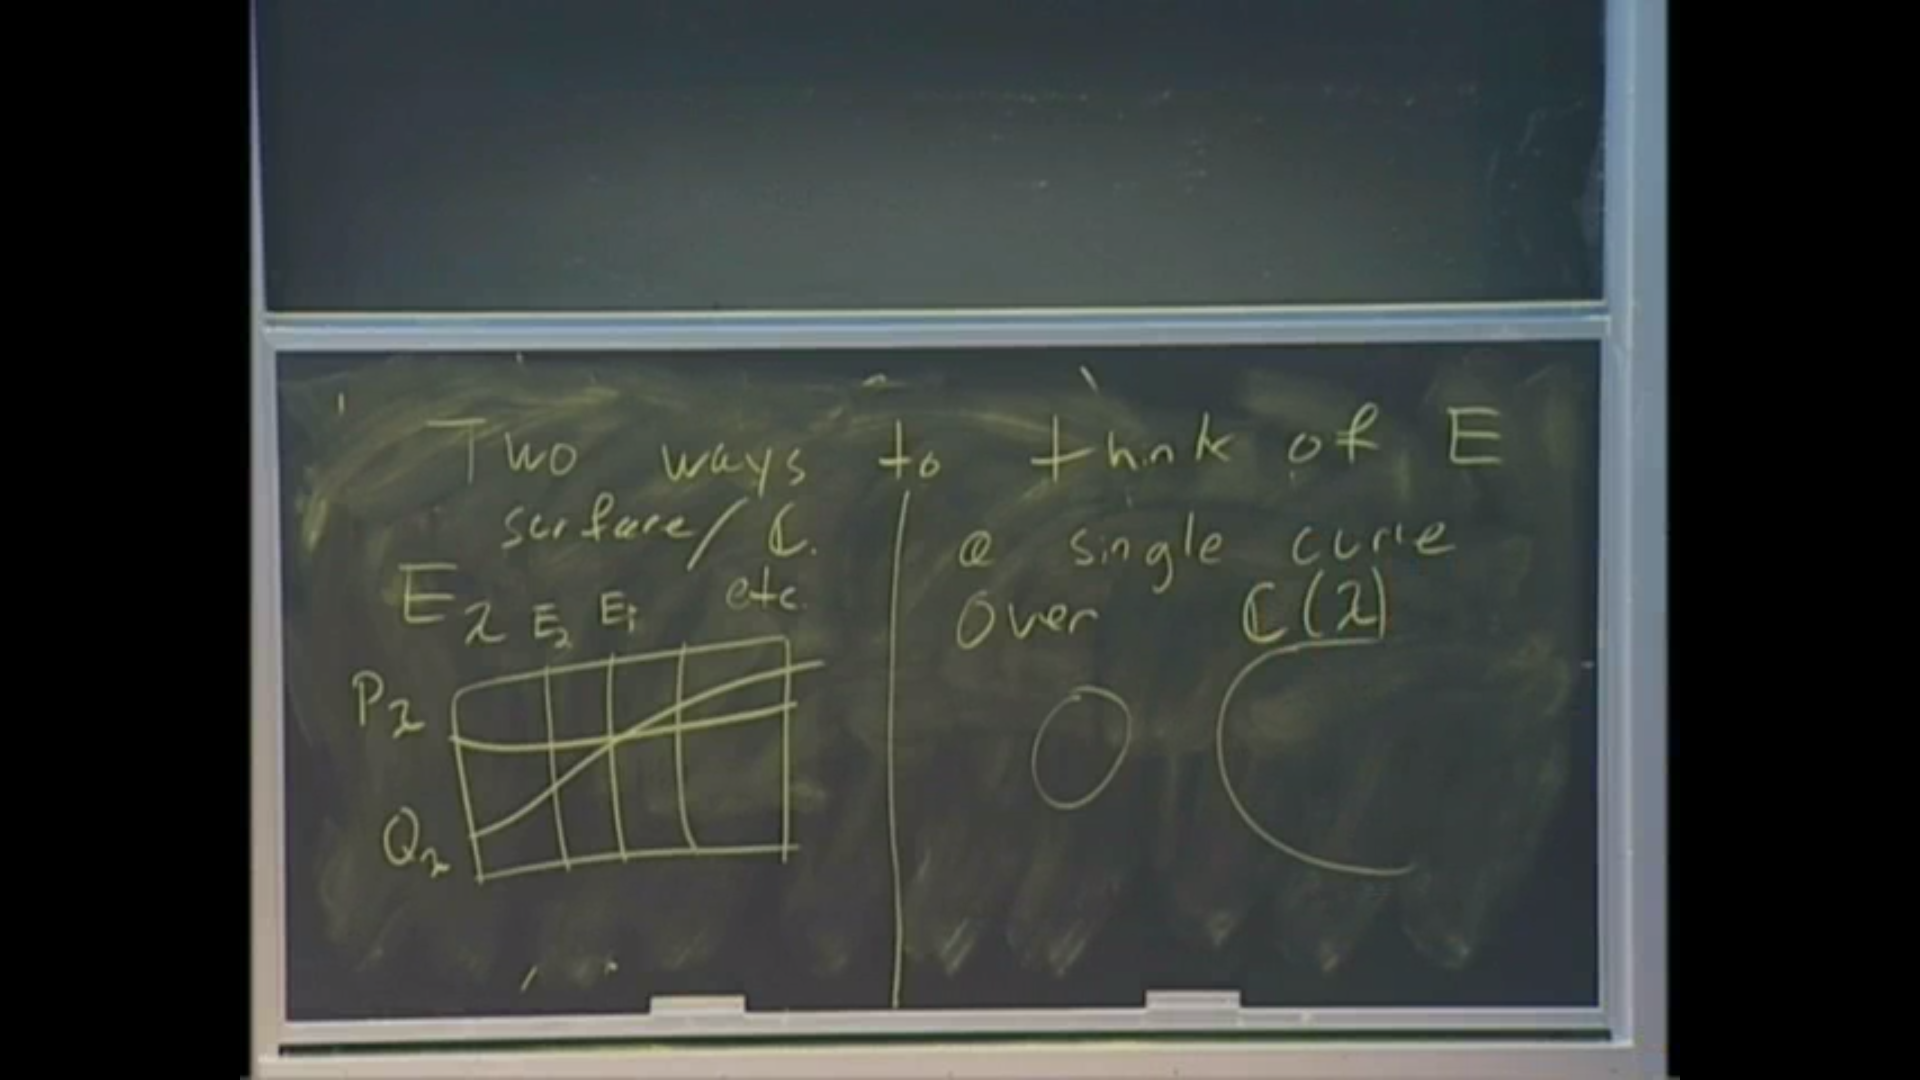 Two ways to think of E
surface/ℂ.
E_λ E_2 E_i etc.
P_λ
Q_λ
a single curve
over ℂ(λ)